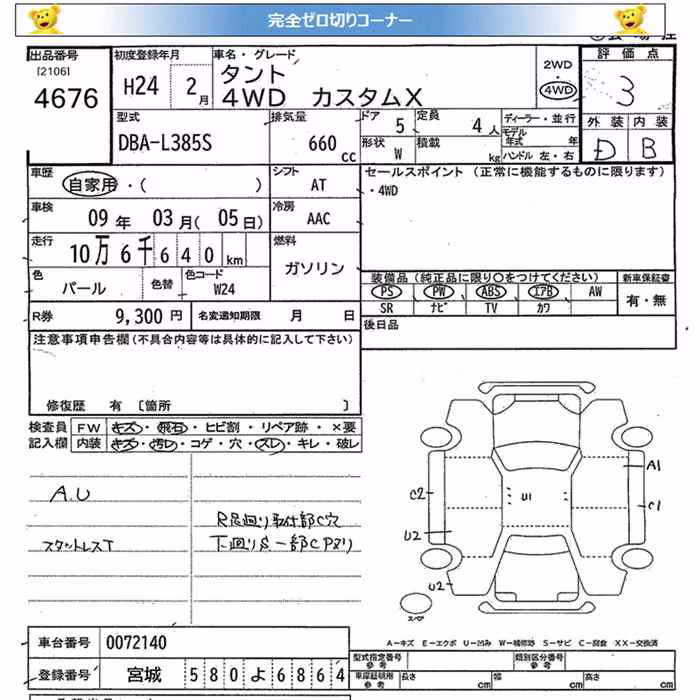 完全ゼロ切りコーナー
出品番号
[2106]
4676
初度登録年月
H24 2月
車名・グレード
タント
4WD カスタムX
2WD
・
4WD
評価点
3
外装 内装
D B
型式
DBA-L385S
排気量
660 cc
ドア 5
定員 4人
形状 W
積載 kg
ディーラー・並行
モデル年式 年
ハンドル 左・右
車歴
自家用・( )
シフト
AT
セールスポイント (正常に機能するものに限ります)
・4WD
車検
09年 03月(05日)
冷房
AAC
走行
10万6千640km
燃料
ガソリン
色
パール
色替
色コード
W24
装備品(純正品に限り〇をつけてください)
PS PW ABS エアB AW
SR ナビ TV カワ
新車保証書
有・無
R券 9,300円
名変通知期限 月 日
後日品
注意事項申告欄(不具合内容等は具体的に記入して下さい)
修復歴 有 〔箇所 〕
検査員記入欄
FW キズ・飛石・ヒビ割・リペア跡・×要
内装 キズ・汚レ・コゲ・穴・スレ・キレ・破レ
A.U
スタットレスT
R足廻り取付部C穴
下廻りS一部Cアリ
A1
C2
U1
C1
U2
U2
スペア
A-キズ E-エクボ U-凹み W-補修跡 S-サビ C-腐食 XX-交換済
車台番号 0072140
型式指定番号
参考
類別区分番号
参考
登録番号 宮城 580よ6864
車庫証明用
参考
長さ cm 幅 cm 高さ cm